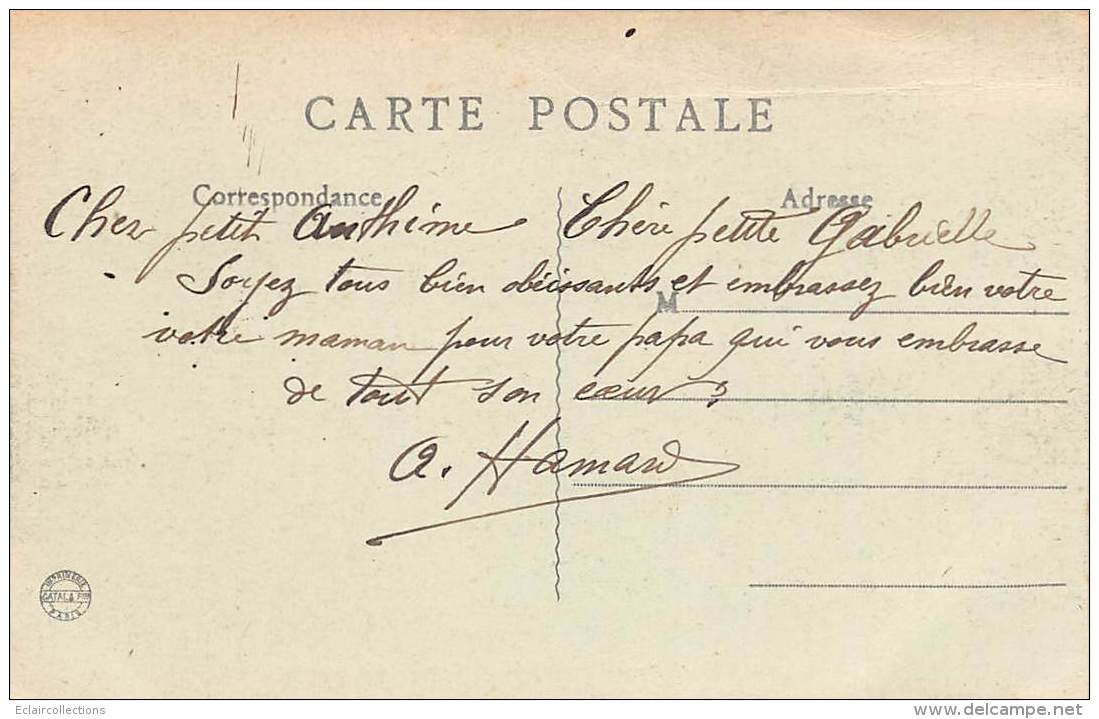 CARTE POSTALE
Correspondance
Adresse
Cher petit Anthime Chère petite Gabrielle
Soyez tous bien obéissants et embrassez bien votre
M
votre maman pour votre papa qui vous embrasse
de tout son cœur
A. Hamard
IMPRIMERIE
CATALA Frès
PARIS
Eclaircollections
www.delcampe.net